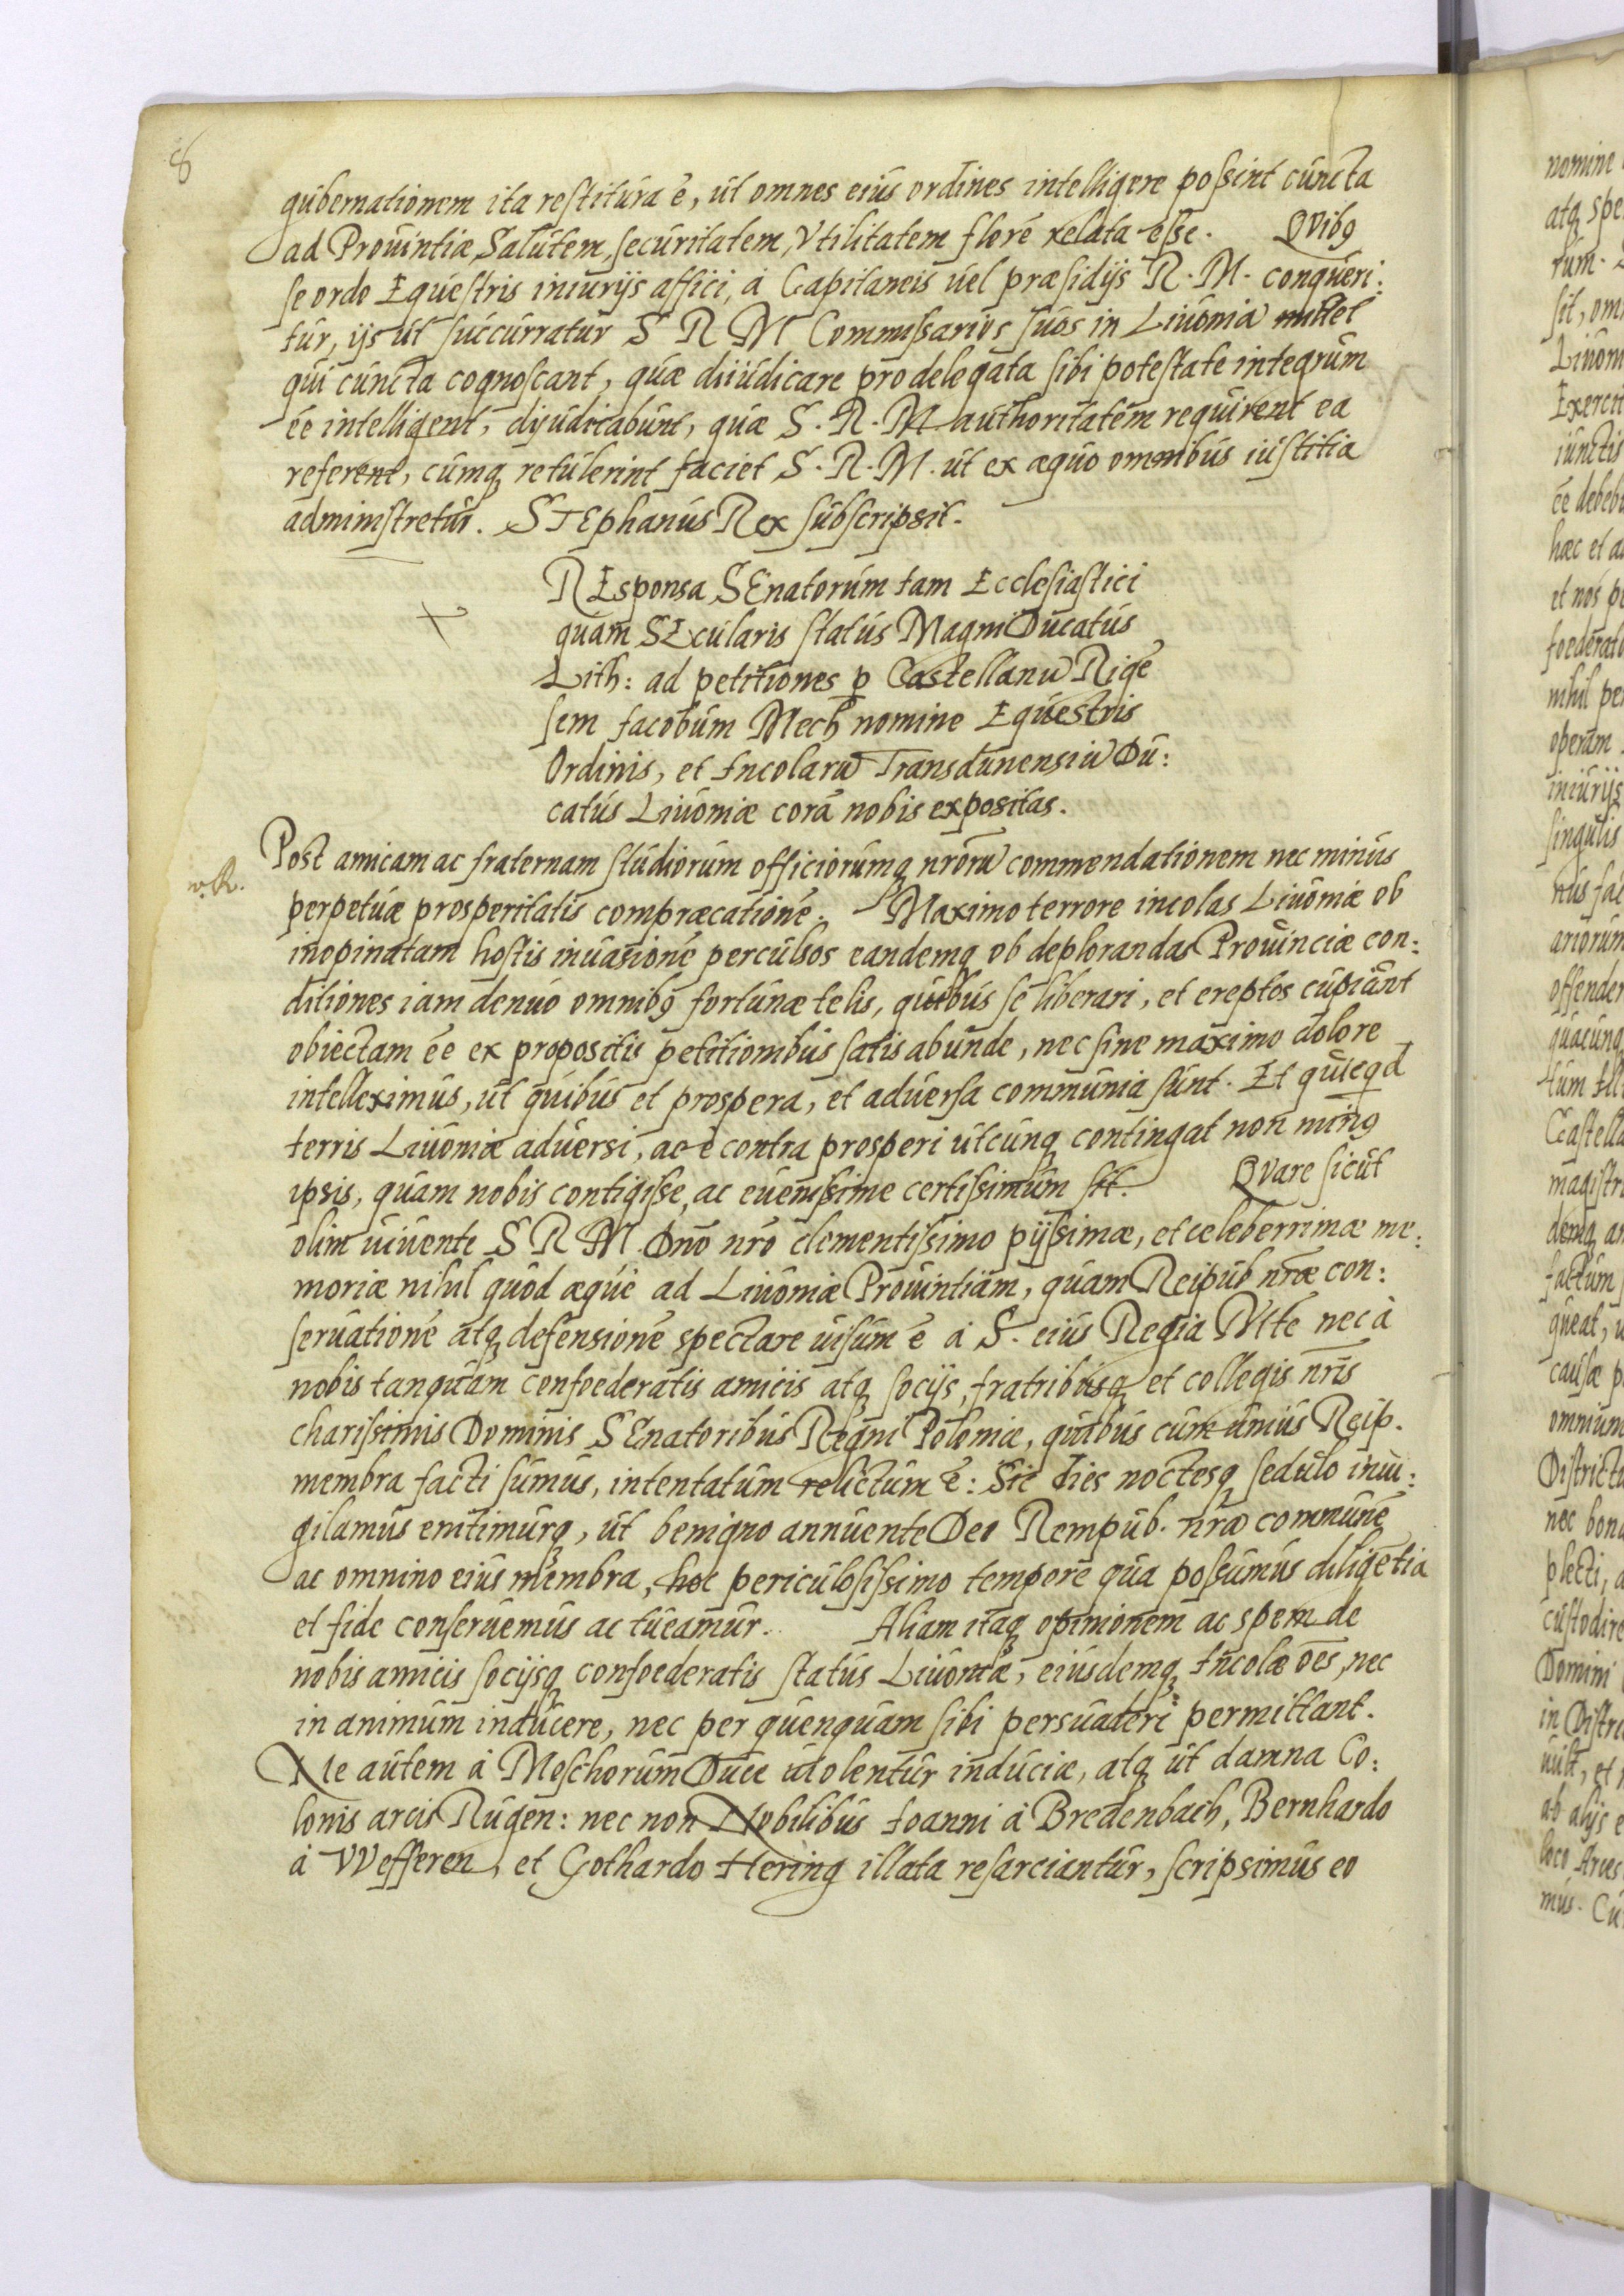 8
gubernationem ita restitura ē, ut omnes eius ordines intelligere possint cuncta
ad Prouintiæ Salutem, securitatem, Vtilitatem florē relata esse. QVibꝰ
se ordo Equestris iniurijs affici, à Capitaneis uel præsidijs R. M. conqueri:
tur, ijs ut succurratur S R M Commissarios suos in Liuoniā mittet
qui cuncta cognoscant, quæ diiudicare pro delegata sibi potestate integrum
ēe intelligent, dijudicabunt, quæ S. R. M authoritatem requirent ea
referent, cumq retulerint faciet S. R. M. ut ex æquo omnibus iustitia
administretur. STEphanus Rex subscripsit.
REsponsa SEnatorum tam Ecclesiastici
quam SEcularis status Magni Ducatus
Lith: ad petitiones ꝑ Castellanū Rigē
sem Jacobum Mech nomine Equestris
Ordinis, et Incolarū Transdunensiū Du:
catus Liuoniæ corā nobis expositas.
Post amicam ac fraternam studiorum officiorumq nrōrū commendationem nec minus
perpetuæ prosperitatis compræcationē. Maximo terrore incolas Liuoniæ ob
inopinatam hostis inuasionē perculsos eandemq ob deplorandas Prouinciæ con:
ditiones iam denuo omnibꝰ fortunæ telis, quibus se liberari, et ereptos cupiant
obiectam ēe ex propositis petitionibus satis abunde, nec sine maximo dolore
intelleximus, ut quibus et prospera, et aduersa communia sunt. Et quicqd
terris Liuoniæ aduersi, ac è contra prosperi utcunq contingat non minꝰ
ipsis, quam nobis contigisse, ac euenissime certissimum sit. QVare sicut
olim uiuente S R M. Dnō nrō clementissimo pijssimæ, et celeberrimæ me:
moriæ nihil quod æque ad Liuoniæ Prouintiam, quam Reipub nrāe con:
seruationē atq defensionē spectare uisum ē à S. eius Regia Mte nec à
nobis tanquam confoederatis amicis atq socijs, fratribusq et collegis nrīs
charissimis Dominis SEnatoribus Regni Poloniæ, quibus cum unius Reip.
membra facti sumus, intentatum relictum ē: Sic dies noctesq sedulo inui:
gilamus enitimurq, ut benigno annuente Deo Rempub. nrā communē
ac omnino eius membra, hoc periculosissimo tempore qua possumus diligētia
et fide conseruemus ac tueamur. Aliam itaq opinionem ac spem de
nobis amicis socijsq confoederatis status Liuoniæ, eiusdemq Incolæ oēs, nec
in animum inducere, nec per quenquam sibi persuaderi permittant.
Ne autem à Moschorum Duce uiolentur induciæ, atq ut damna Co:
lonis arcis Rugen: nec non Nobilibus Joanni à Bredenbach, Bernhardo
à VVefferen, et Gothardo Hering illata resarciantur, scripsimus eo